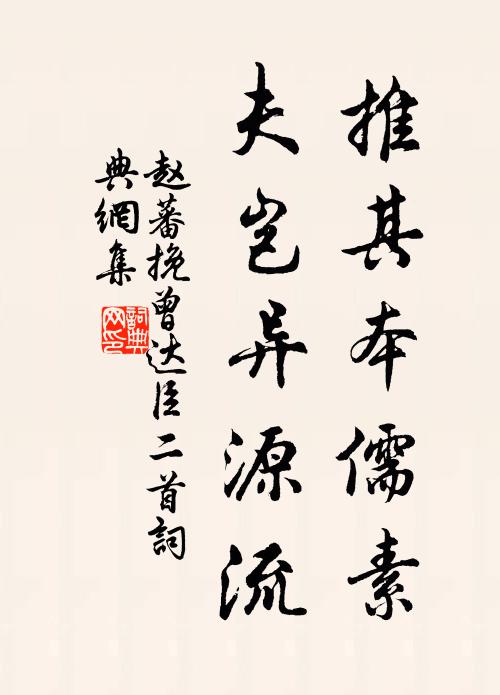 推其本儒素
夫岂异源流
赵蕃挽曾达臣二首詞
典網集
詞典
网印